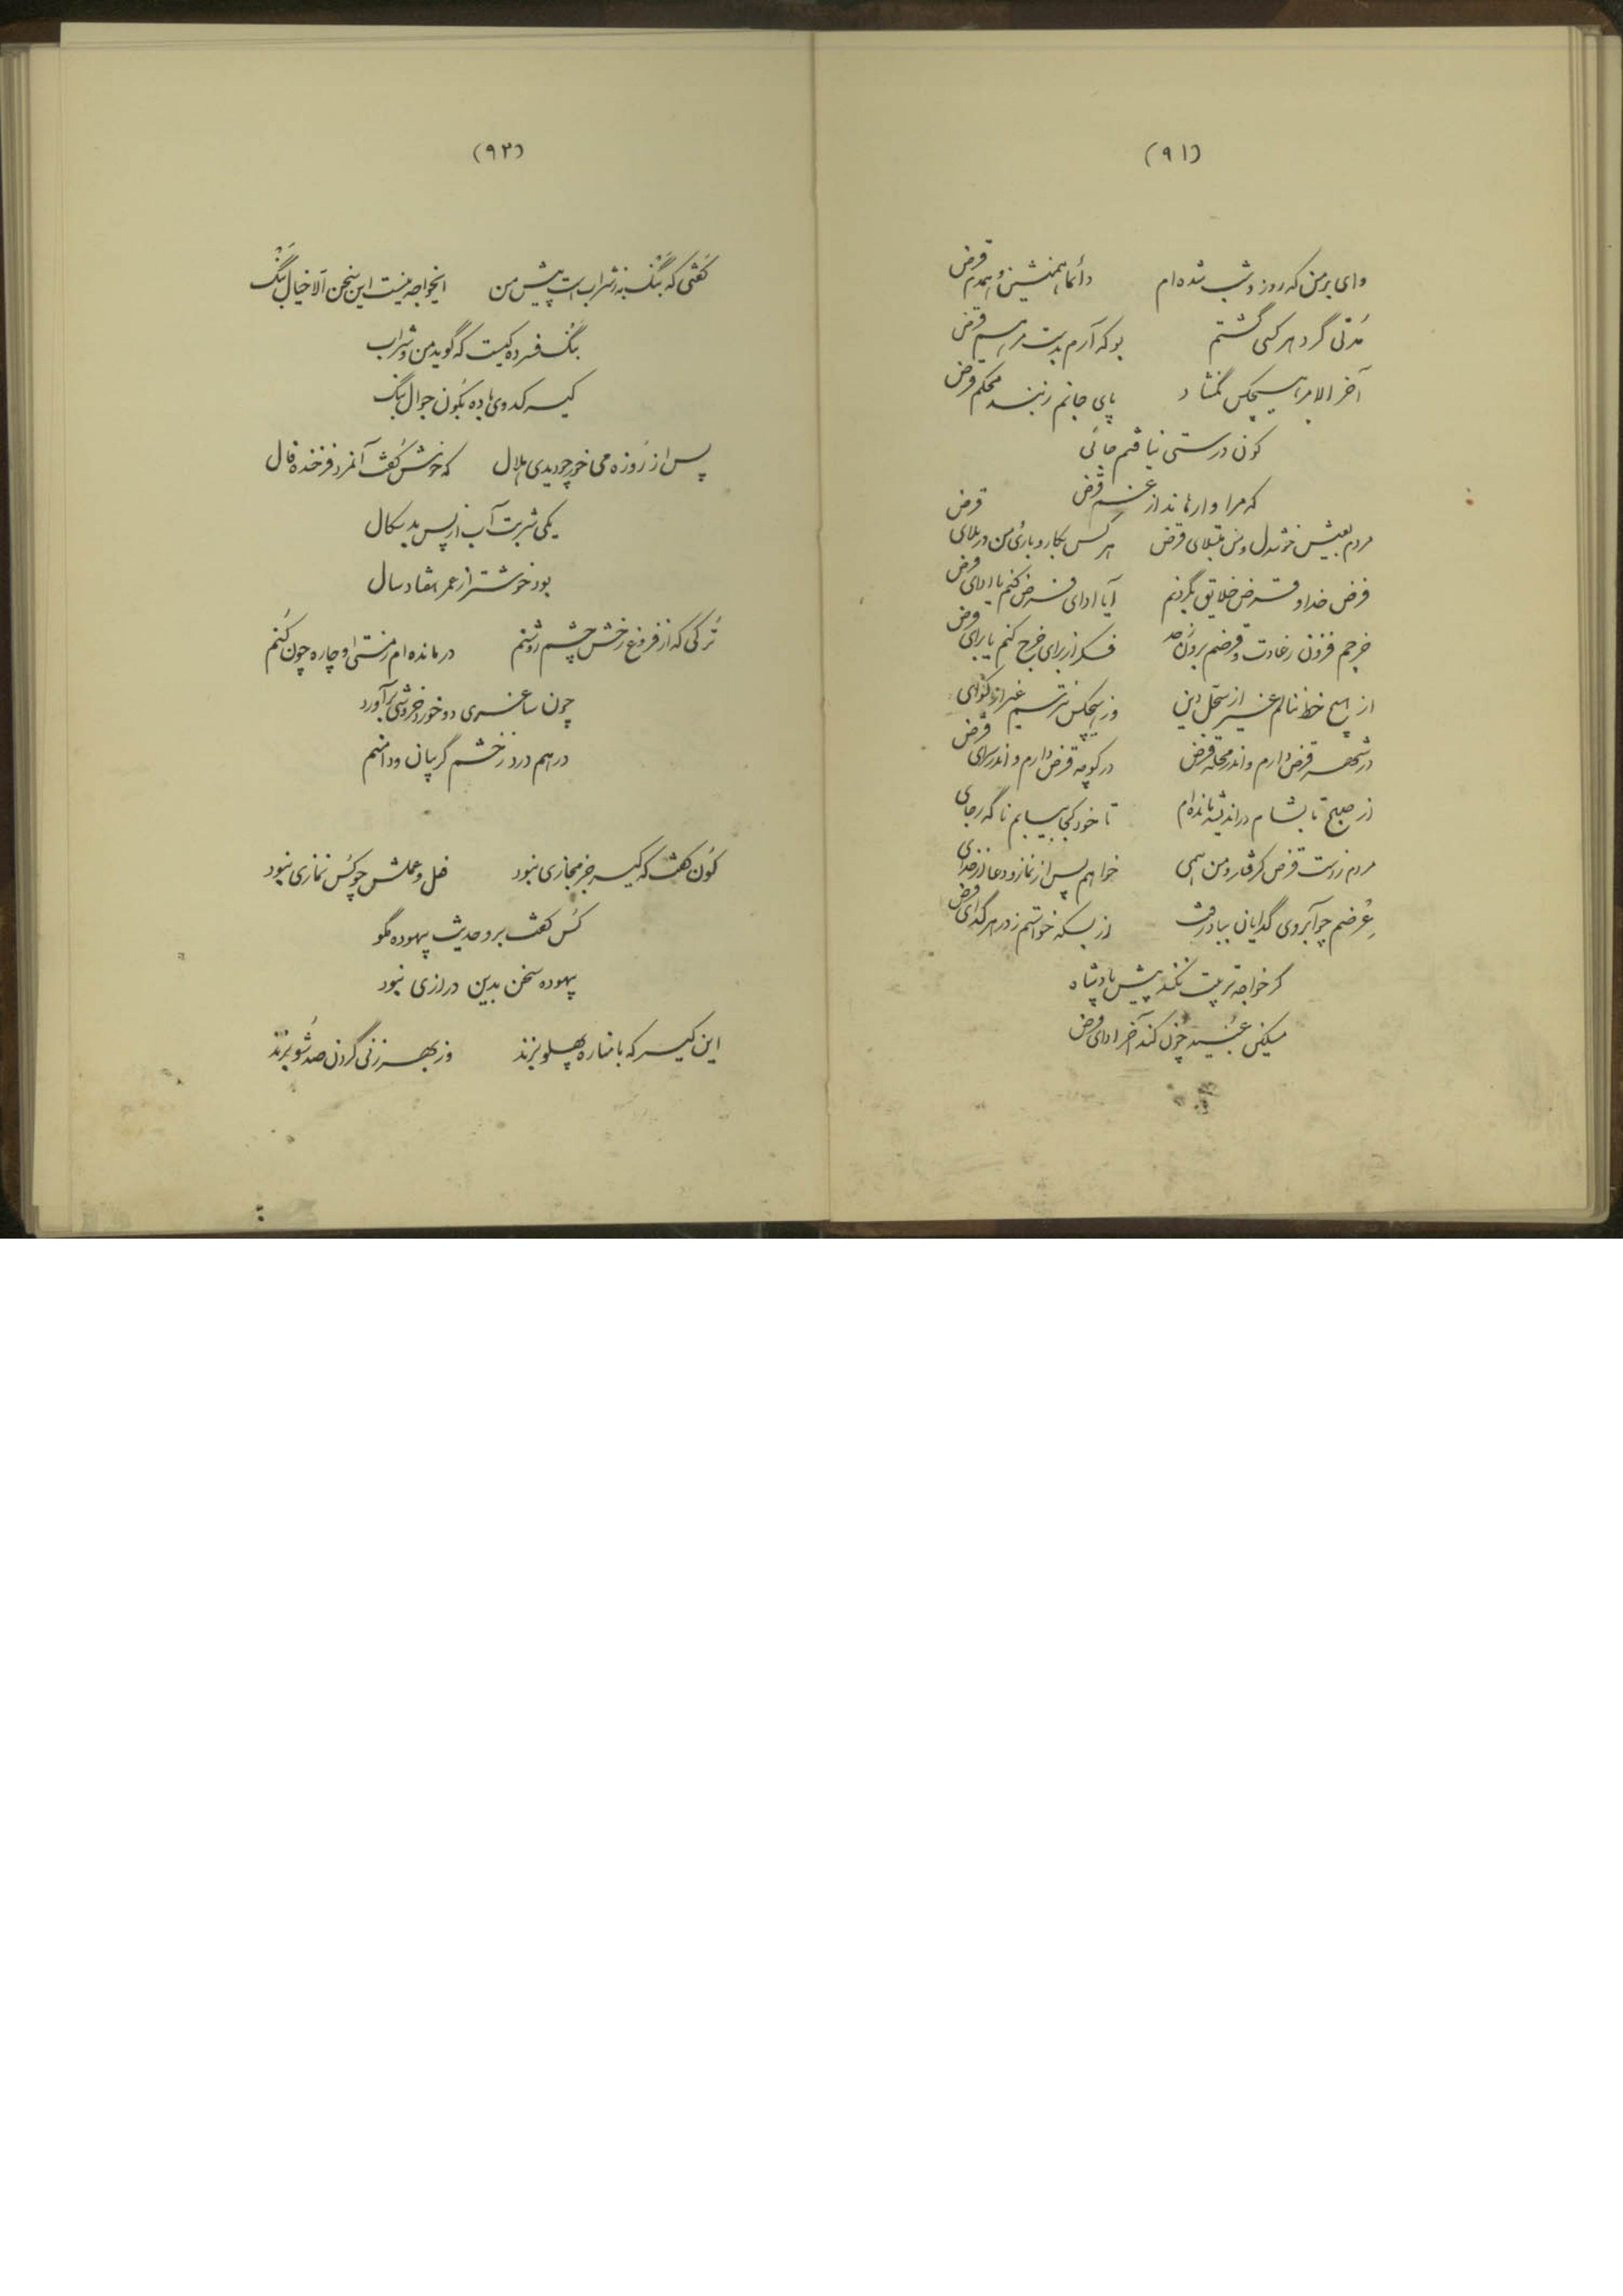 (۹۱)
وای بر من که روز و شب شده‌ام دائما همنشین و همدم قرض
مدتی گرد هر کسی گشتم بو که آرم بدست مرهم قرض
آخر الامر هیچکس نگشاد پای جانم ز بند محکم قرض
کون درستی نیافتم جائی
که مرا وارهاند از غم قرض
مردم بعیش خوشدل و من مبتلای قرض هر کس بکار و باری و من در بلای قرض
فرض خدا و قرض خلایق بگردنم آیا ادای فرض کنم یا ادای قرض
خرجم فزون ز عادت و قرضم برون ز حد فکر از برای خرج کنم یا برای قرض
از هیچ خط ننالم غیر از سجل دین وز هیچکس نترسم غیر از گوای قرض
در شهر قرض دارم و اندر محله قرض در کوچه قرض دارم و اندر سرای قرض
از صبح تا بشام در اندیشه مانده‌ام تا خود کجا بیابم ناگه رجای
مردم ز دست قرض گرفتار و من همی خواهم پس از نماز و دعا از خدای
عرضم چو آبروی گدایان بباد رفت از بسکه خواستم ز در هر گدای قرض
گر خواجه تربیت نکند پیش پادشاه
مسکین عبید چون کند آخر ادای قرض
(۹۲)
گفتی که بنگ نه شراب است پیش من ایخواجه نیست این سخن الا خیال بنگ
بنگ فسرده کیست که گوید من و شراب
کیر کدوی باده بکون جوال بنگ
پس از روزه می خور چو دیدی هلال که خوش گفت آنمرد فرخنده فال
یکی شربت آب از پس بدسگال
بود خوشتر از عمر هفتاد سال
ترکی که از فروغ رخش چشم روشنم درمانده‌ام ز مستی او چاره چون کنم
چون ساغری دو خورد خروشی برآورد
در هم درد ز خشم گریبان و دامنم
کون گفت که کیر جز مجازی نبود فعل و عملش چو کس نمازی نبود
کس گفت برو حدیث بیهوده مگو
بیهوده سخن بدین درازی نبود
این کیر که با مناره پهلو بزند وز بهر زنی گردن صد شو بزند